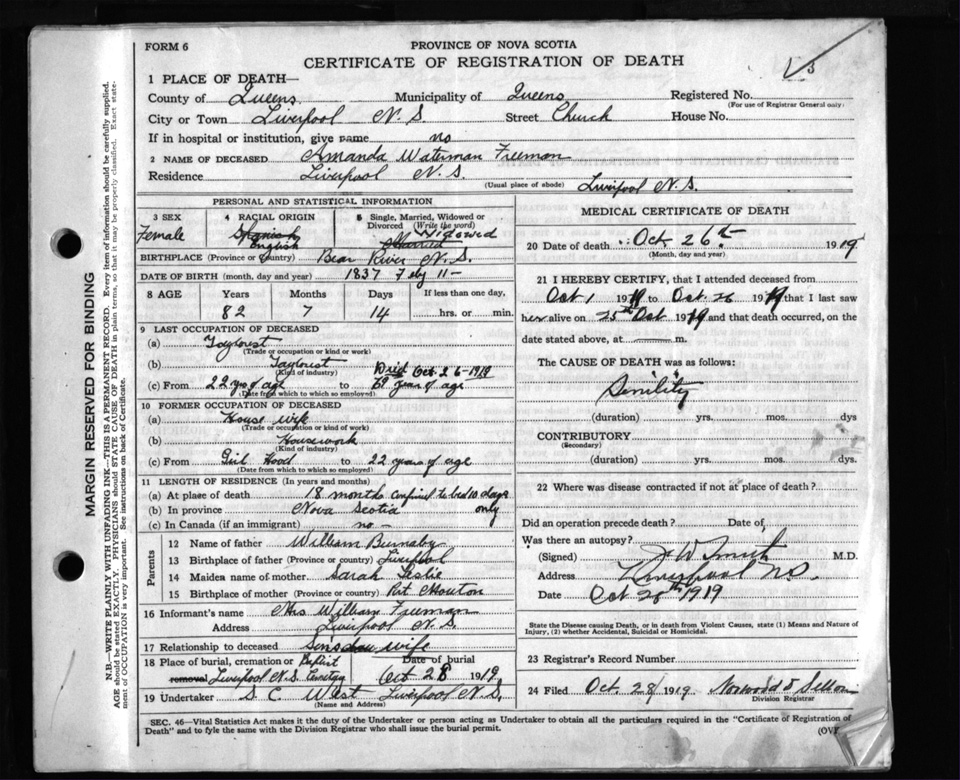 FORM 6
PROVINCE OF NOVA SCOTIA
CERTIFICATE OF REGISTRATION OF DEATH
3
1 PLACE OF DEATH—
County of Queens Municipality of Queens Registered No.
(For use of Registrar General only)
City or Town Liverpool N. S. Street Church House No.
If in hospital or institution, give name no
2 NAME OF DECEASED Amanda Waterman Freeman
Residence Liverpool N. S. (Usual place of abode) Liverpool N. S.
PERSONAL AND STATISTICAL INFORMATION
3 SEX 4 RACIAL ORIGIN 5 Single, Married, Widowed or Divorced (Write the word)
Female Spanish English Married Widowed
BIRTHPLACE (Province or Country) Bear River N. S.
DATE OF BIRTH (month, day and year) 1837 Feby 11-
8 AGE Years Months Days If less than one day,
82 7 14 hrs. or min.
9 LAST OCCUPATION OF DECEASED
(a) Taylorist
(Trade or occupation or kind or work)
(b) Taylorist Died Oct. 26-1919
(Kind of industry)
(c) From 22 yrs of age to 69 years of age
(Date from which to which so employed)
10 FORMER OCCUPATION OF DECEASED
(a) House wife
(Trade or occupation or kind of work)
(b) Housework
(Kind of industry)
(c) From Girl Hood to 22 years of age
(Date from which to which so employed)
11 LENGTH OF RESIDENCE (In years and months)
(a) At place of death 18 months confined to bed 10 days
(b) In province Nova Scotia only
(c) In Canada (if an immigrant) no-
Parents
12 Name of father William Burnaby
13 Birthplace of father (Province or country) Liverpool
14 Maiden name of mother Sarah Leslie
15 Birthplace of mother (Province or country) Port Mouton
16 Informant's name Mrs William Freeman
Address Liverpool N. S.
17 Relationship to deceased Sons wife
18 Place of burial, cremation or removal Baptist Date of burial
Liverpool N. S. Cemetery Oct 28 1919
19 Undertaker S. C. West Liverpool N. S.
(Name and Address)
MEDICAL CERTIFICATE OF DEATH
20 Date of death Oct 26th 1919
(Month, day and year)
21 I HEREBY CERTIFY, that I attended deceased from
Oct 1 1919 to Oct. 26 1919 that I last saw
her alive on 25th Oct 1919 and that death occurred, on the
date stated above, at m.
The CAUSE OF DEATH was as follows:
Senility
(duration) yrs. mos. dys
CONTRIBUTORY
(Secondary)
(duration) yrs. mos. dys.
22 Where was disease contracted if not at place of death?
Did an operation precede death? Date of
Was there an autopsy?
(Signed) J W Smith M.D.
Address Liverpool N.S.
Date Oct 28th 1919
State the Disease causing Death, or in death from Violent Causes, state (1) Means and Nature of
Injury, (2) whether Accidental, Suicidal or Homicidal.
23 Registrar's Record Number
24 Filed Oct. 28 1919
Division Registrar
SEC. 46—Vital Statistics Act makes it the duty of the Undertaker or person acting as Undertaker to obtain all the particulars required in the "Certificate of Registration of
Death" and to fyle the same with the Division Registrar who shall issue the burial permit.
(OV
MARGIN RESERVED FOR BINDING
N.B.—WRITE PLAINLY WITH UNFADING INK—THIS IS A PERMANENT RECORD. Every item of information should be carefully supplied.
AGE should be stated EXACTLY. PHYSICIANS should STATE CAUSE OF DEATH in plain terms, so that it may be properly classified. Exact state-
ment of OCCUPATION is very important. See instructions on back of Certificate.